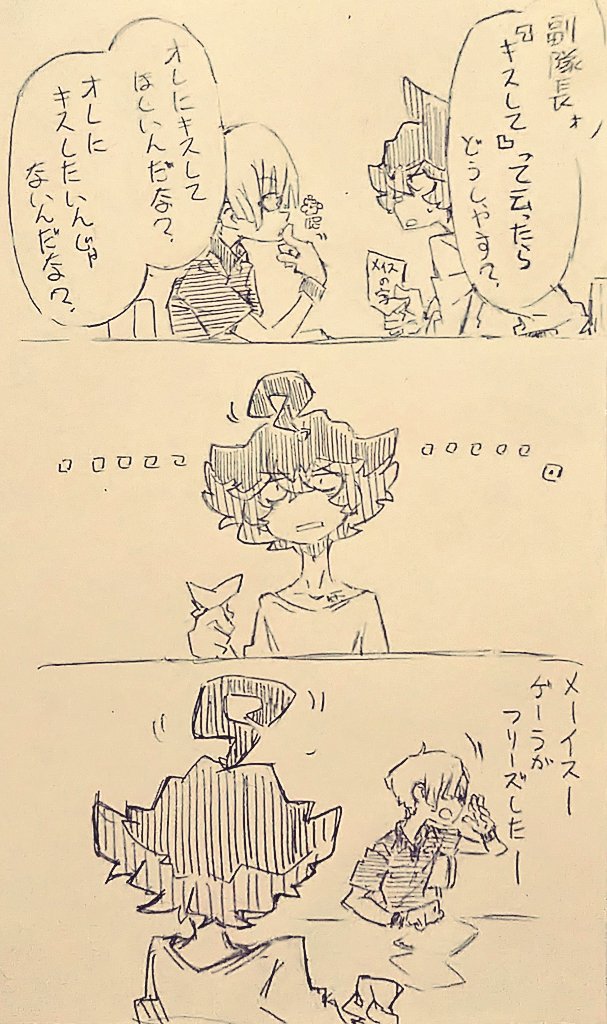 副隊長ォ
『キスして』って云ったら
どうしやす？
メイス
の字
オレにキスして
ほしいんだな？
オレに
キスしたいんじゃ
ないんだな？
メーイスー
ゲーラが
フリーズしたー